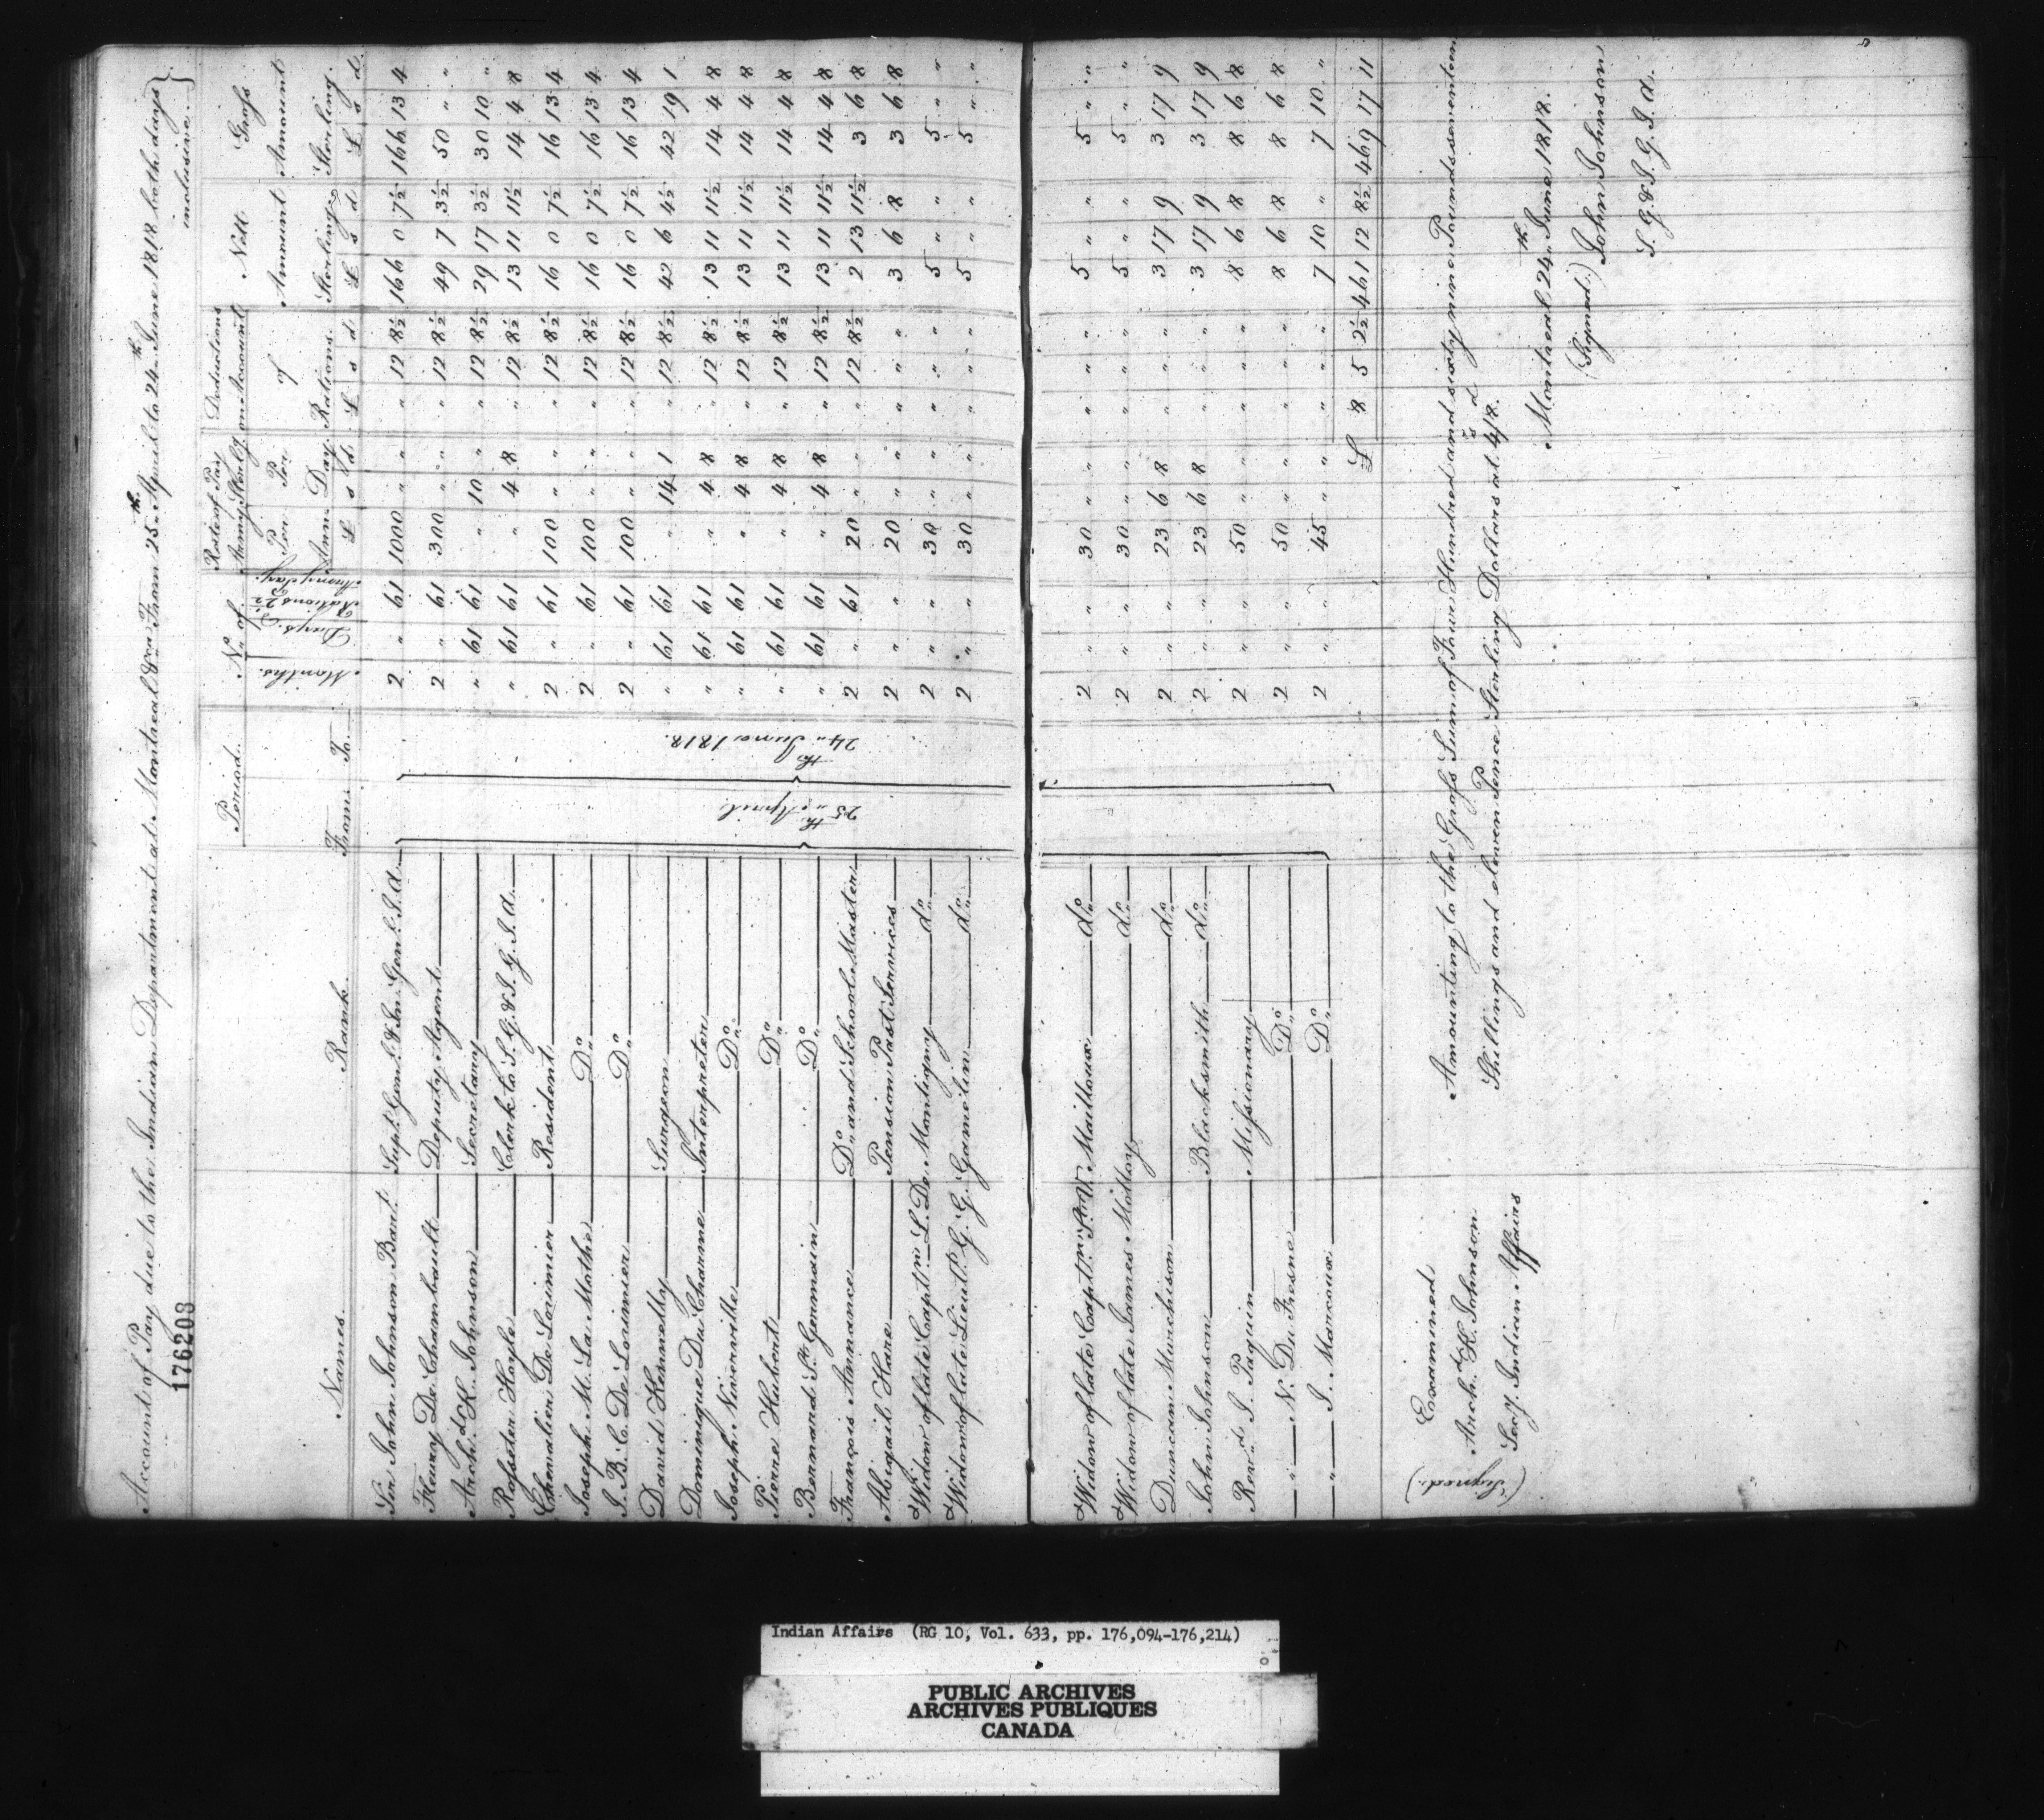 Account of Pay due to the Indian Department at Montreal &ca From 25th April to 24th June 1818 both days inclusive.
176208
Names. Rank. Period. No. of Rate of Pay Army Sterlg. Deductions on Account of Rations Nett Amount Sterling Gross Amount Sterling.
From To. Months. Days Per Ann Per Day
£ s d £ s d £ s d £ s d
25th April 24th June 1818.
Sir John Johnson Bart Supt. Genl. & In. Genl. I. A. 2 " 61 1000 " " " 12 8½ 166 0 7½ 166 13 4
Henry De Chambault Deputy Agent 2 " 61 300 " " " 12 8½ 49 7 3½ 50 " "
Archd. K. Johnson Secretary " 61 61 " 10 " " 12 8½ 29 17 3½ 30 10 "
Rosseter Hoyle Clerk to S. G. & I. G. I. A. " 61 61 " 4 8 " 12 8½ 13 11 11½ 14 4 8
Chevalier De Lorimier Resident 2 " 61 100 " " " 12 8½ 16 0 7½ 16 13 4
Joseph M. La Mothe Do. 2 " 61 100 " " " 12 8½ 16 0 7½ 16 13 4
J. B. C. De Lorimier Do. 2 " 61 100 " " " 12 8½ 16 0 7½ 16 13 4
David Kennelly Surgeon " 61 61 " 14 1 " 12 8½ 42 6 4½ 42 19 1
Dominique Du Charme Interpreter " 61 61 " 4 8 " 12 8½ 13 11 11½ 14 4 8
Joseph Niverville Do. " 61 61 " 4 8 " 12 8½ 13 11 11½ 14 4 8
Pierre Hubert Do. " 61 61 " 4 8 " 12 8½ 13 11 11½ 14 4 8
Bernard St. Germain Do. " 61 61 " 4 8 " 12 8½ 13 11 11½ 14 4 8
François Annance Do. and School Master 2 " 61 20 " " " 12 8½ 2 13 11½ 3 6 8
Abigail Hare Pension Past Services 2 " " 20 " " " " " 3 6 8 3 6 8
Widow of late Captn. L. De Montigny do. 2 " " 30 " " " " " 5 " " 5 " "
Widow of late Lieut. G. G. Gamelin do. 2 " " 30 " " " " " 5 " " 5 " "
Widow of late Captn. Mailloux do. 2 " " 30 " " " " " 5 " " 5 " "
Widow of late James Molloy do. 2 " " 30 " " " " " 5 " " 5 " "
Duncan Murchison do. 2 " " 23 6 8 " " " 3 17 9 3 17 9
John Johnson Blacksmith do. 2 " " 23 6 8 " " " 3 17 9 3 17 9
Revd. J. Paquin Missionary 2 " " 50 " " " " " 8 6 8 8 6 8
" N. Du Fresne Do. 2 " " 50 " " " " " 8 6 8 8 6 8
" J. Marcoux Do. 2 " " 45 " " " " " 7 10 " 7 10 "
£ 8 5 2½ 461 12 8½ 469 17 11
Amounting to the Gross Sum of Four Hundred and sixty nine Pounds seventeen
Shillings and eleven Pence Sterling Dollars at 4s/8d.
Examined
(Signed.) Archd. K. Johnson
Secy. Indian Affairs
Montreal 24th June 1818.
(Signed.) John Johnson
S. G. & I. G. I. A.
Indian Affairs (RG 10, Vol. 633, pp. 176,094-176,214)
PUBLIC ARCHIVES
ARCHIVES PUBLIQUES
CANADA